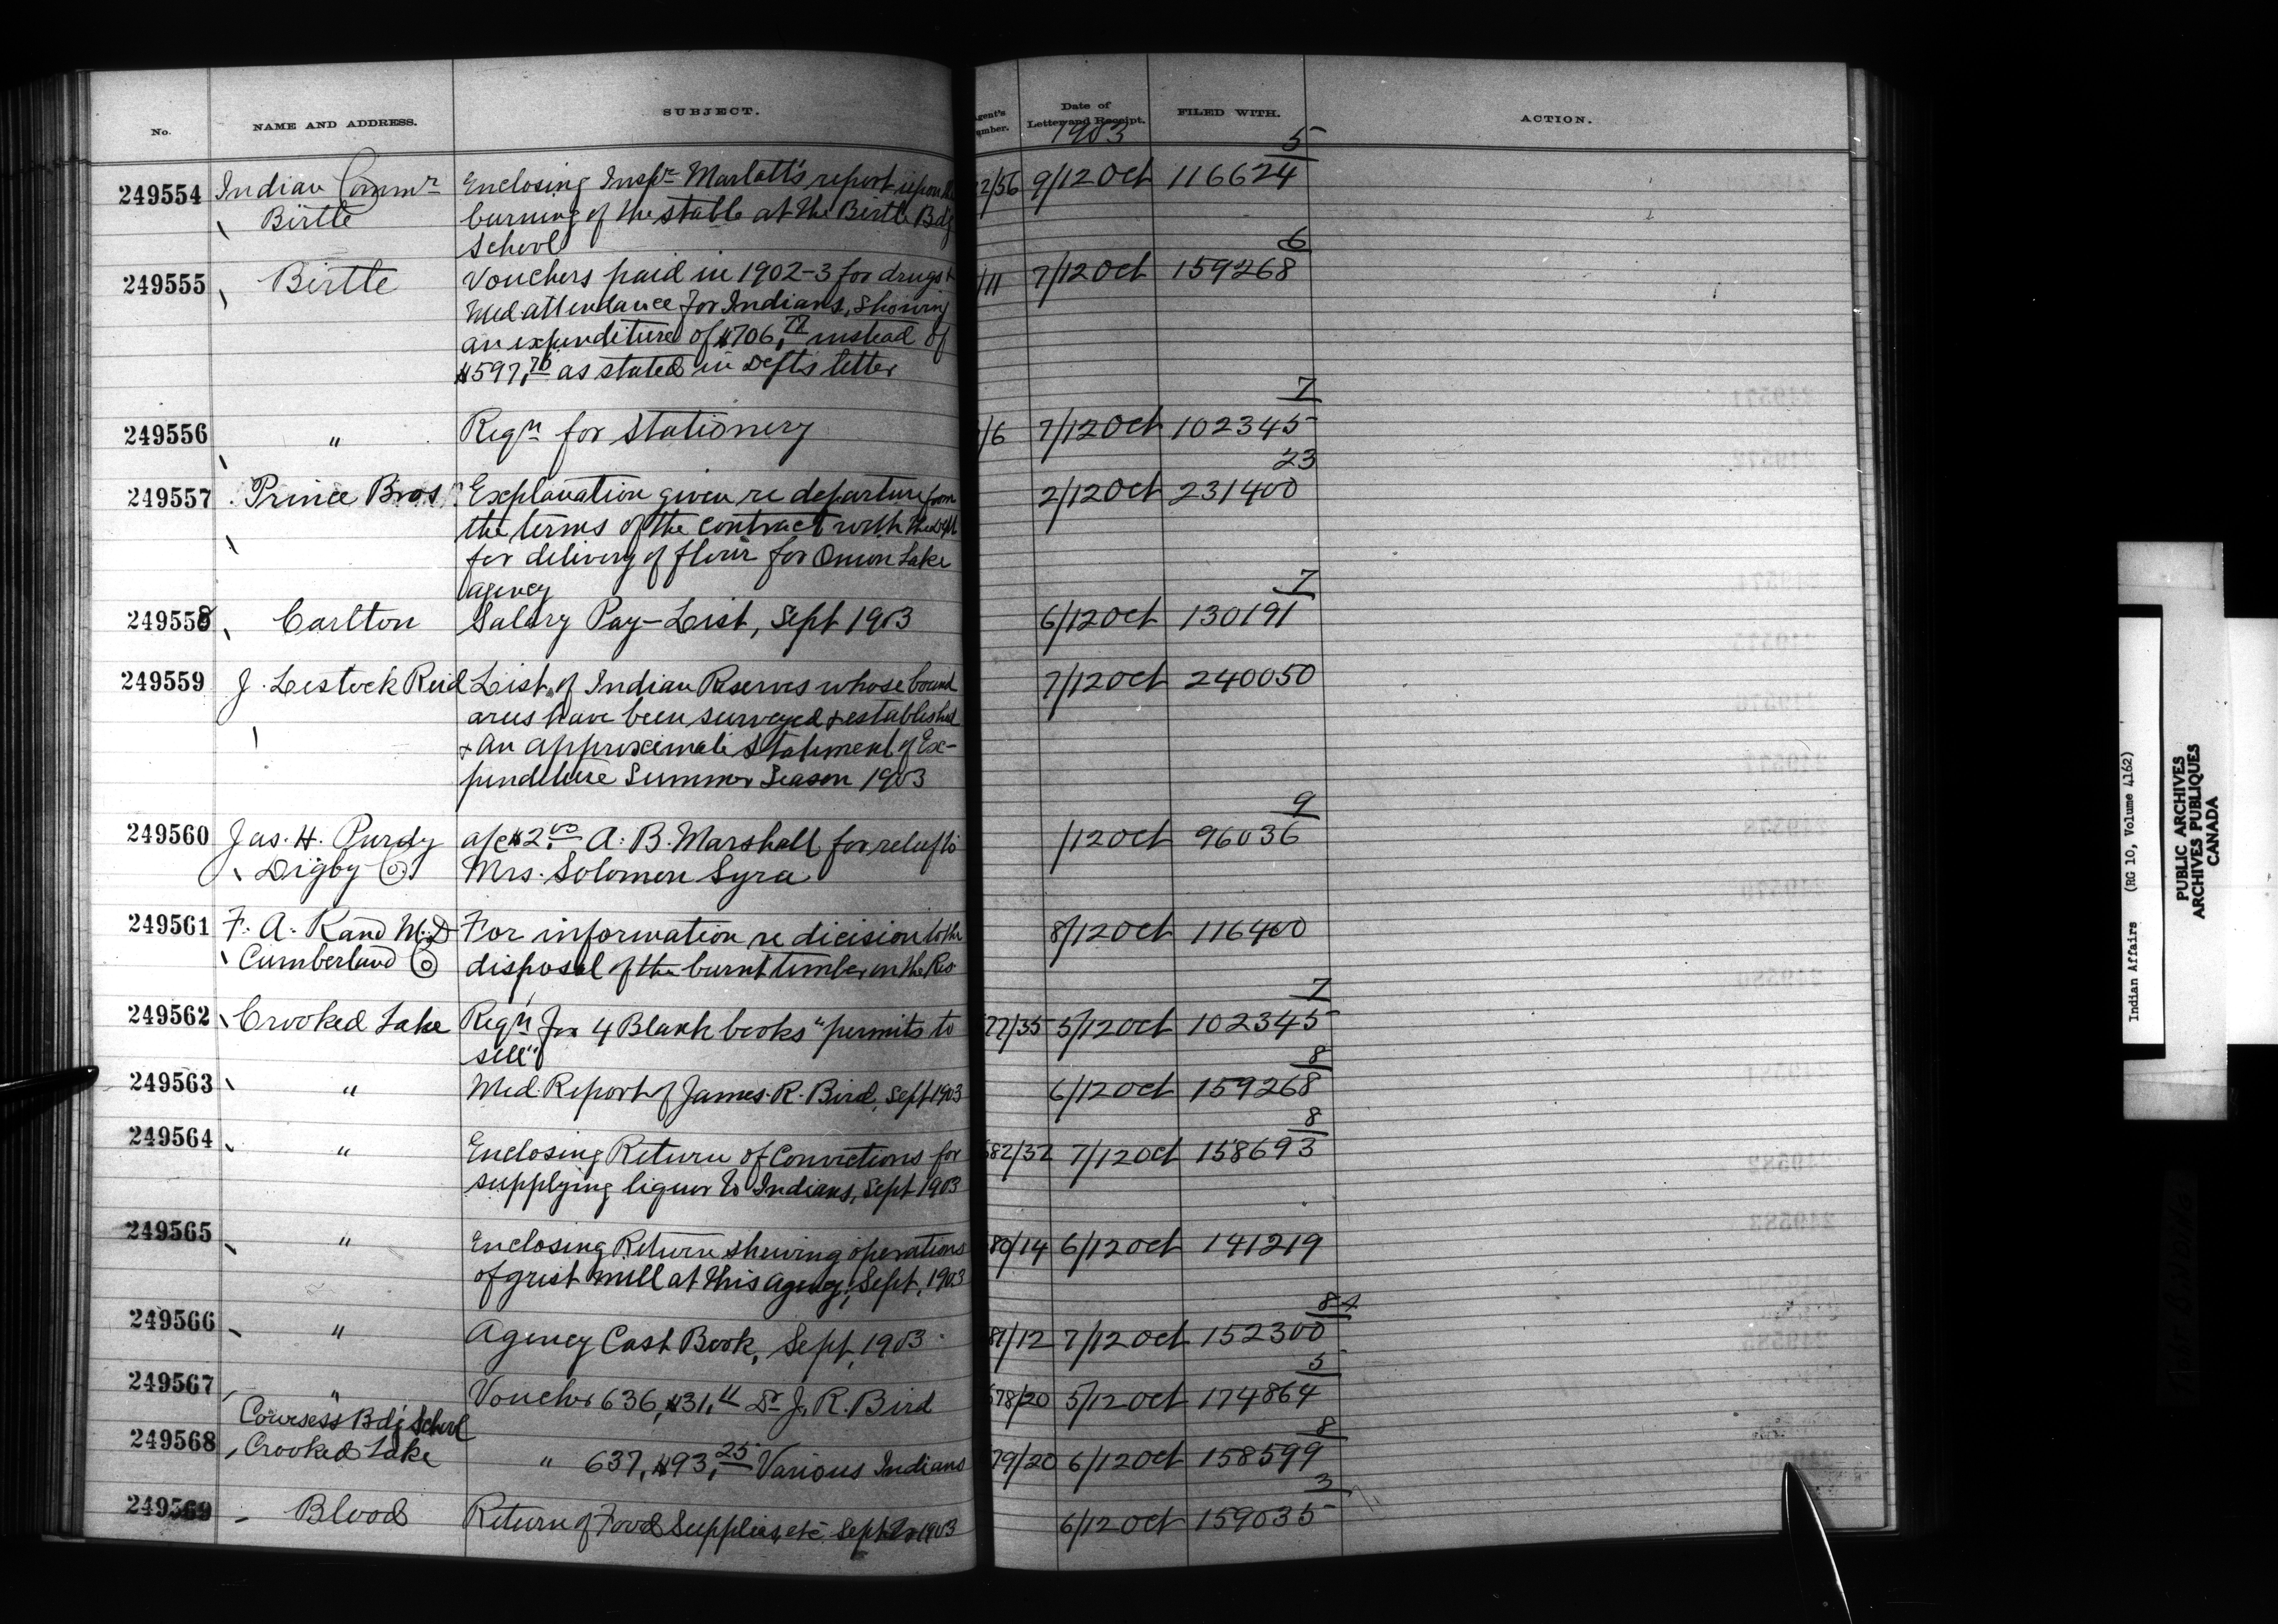 No.
NAME AND ADDRESS.
SUBJECT.
Agent's Number.
Date of Letter and Receipt.
FILED WITH.
ACTION.
1903
5
249554 Indian Commr Enclosing Inspr Marlatt's report upon the 2/56 9/12 Oct 116624
Birtle burning of the stable at the Birtle Bdg
School
6
249555 Birtle Vouchers paid in 1902-3 for drugs & /11 7/12 Oct 159268
Med. attendance for Indians, showing
an expenditure of $706.77 instead of
$597.76 as stated in Dept's letter
7
249556 " Reqn for Stationery /6 7/12 Oct 102345
23
249557 Prince Bros. Explanation given re departure from 2/12 Oct 231400
the terms of the contract with the Dept
for delivery of flour for Onion Lake
agency
7
249558 Carlton Salary Pay-List, Sept 1903 6/12 Oct 130191
249559 J. Lestock Reid List of Indian Reserves whose bound 7/12 Oct 240050
aries have been surveyed & established
& an approximate statement of Ex-
penditure Summer Season 1903
9
249560 Jas. H. Purdy a/c $2.00 A. B. Marshall for relief to /12 Oct 96036
Digby Co. Mrs. Solomon Syra
249561 F. A. Rand M.D For information re dicision to the 8/12 Oct 116400
Cumberland Co disposal of the burnt timber on the Res
7
249562 Crooked Lake Reqn for 4 Blank books "permits to 77/35 5/12 Oct 102345
sell"
8
249563 " Med. Report of James. R. Bird, Sept 1903 6/12 Oct 159268
8
249564 " Enclosing Return of Convictions for 82/32 7/12 Oct 158693
supplying liquor to Indians, Sept 1903
249565 " Enclosing Return shewing operations 80/14 6/12 Oct 141219
of grist mill at this agency, Sept, 1903
8
249566 " Agency Cash Book, Sept, 1903 81/12 7/12 Oct 152300
5
249567 " Voucher 636, $31. Dr J. R. Bird 78/20 5/12 Oct 174864
Cowesess Bdg School
8
249568 Crooked Lake " 637, $93.25 Various Indians 79/20 6/12 Oct 158599
3
249569 Blood Return of Food Supplies, etc Sept 1903 6/12 Oct 159035
Indian Affairs (RG 10, Volume 4162)
PUBLIC ARCHIVES
ARCHIVES PUBLIQUES
CANADA